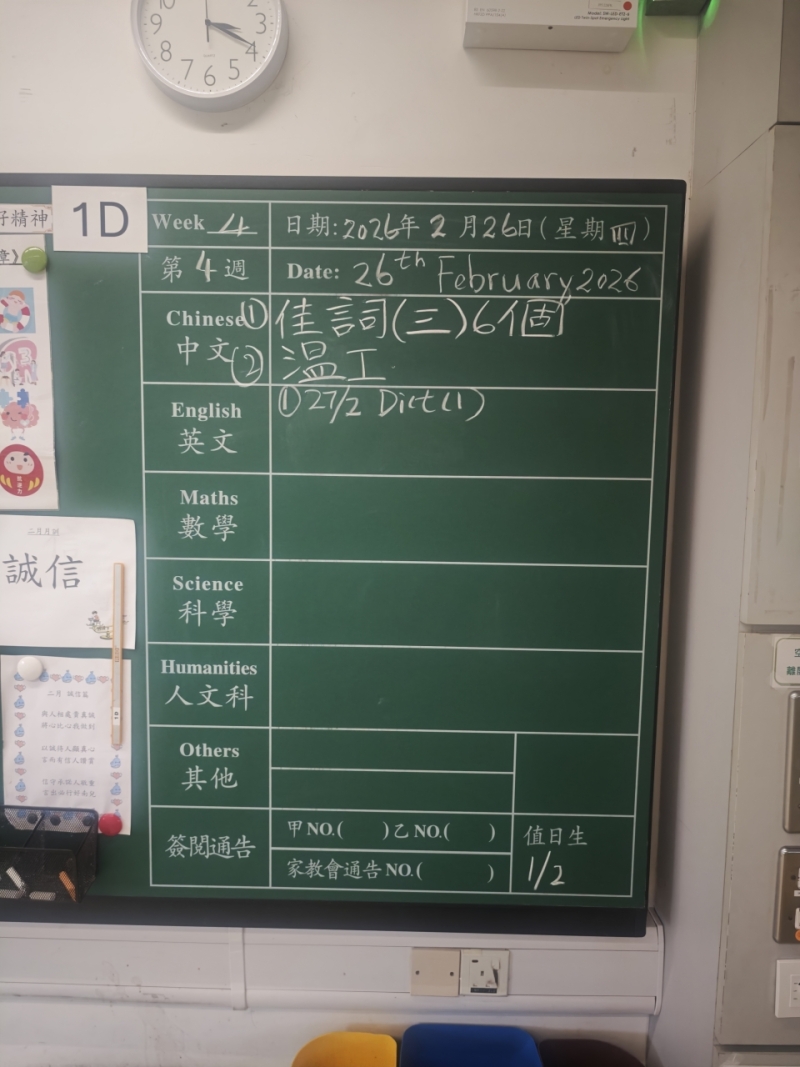 10
9
8
7
6
5
4
3
2
好精神
1D
Week 4
日期:2026年2月26日(星期四)
第4週
Date: 26th February 2026
Chinese
中文
① 佳詞(三)6個
② 溫工
English
英文
① 27/2 Dict(1)
Maths
數學
Science
科學
Humanities
人文科
Others
其他
簽閱通告
甲NO.( )乙NO.( )
家教會通告NO.( )
值日生
1/2
章》
二月月訓
誠信
二月 誠信篇